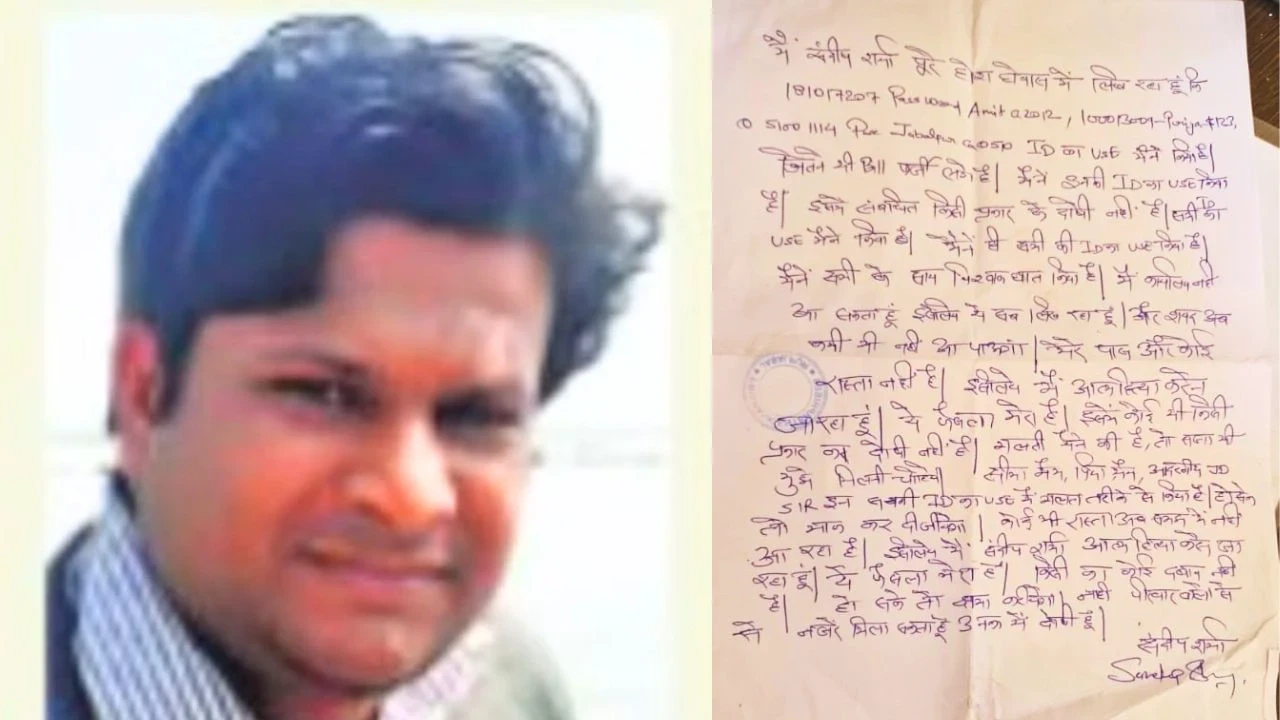 मैं संदीप शर्मा पूरे होश हवास में लिख रहा हूं कि
181017207 Password Amit@2012,
51001114 Jabalpur ID का USE मैंने किया है|
जितने भी Bill फर्जी लगे है| मैंने इनकी ID का USE किया
है| इसमें संबंधित किसी प्रकार के दोषी नहीं है| सभी की ID
USE मैंने किया है| मैंने ही सभी की ID का USE किया है|
मैंने सभी के साथ विश्वासघात किया है| मैं कार्यालय नहीं
आ सकता हूं इसलिये ये सब लिख रहा हूं| और शायद अब
कभी भी नहीं आ पाऊंगा| मेरे पास और कोई
रास्ता नहीं है| इसलिये मैं आत्महत्या करने
जा रहा हूं| ये फैसला मेरा है| इसमें कोई भी किसी
प्रकार का दोषी नहीं है| गलती मैंने की है, तो सजा भी
मुझे मिलनी चाहिये| सीमा मैम, प्रिया मैम, आदरणीय JD
SIR इन सबकी ID का USE मैं गलत तरीके से किया है| हो सके
तो माफ कर दीजियेगा| कोई भी रास्ता अब समझ में नहीं
आ रहा है| इसलिये मैं संदीप शर्मा आत्महत्या करने जा
रहा हूं| ये फैसला मेरा है| किसी का कोई दबाव नहीं
है| हो सके तो क्षमा करियेगा| नहीं परिवार वालों से
नजरें मिला सकता हूं मैं दोषी हूं|
संदीप शर्मा